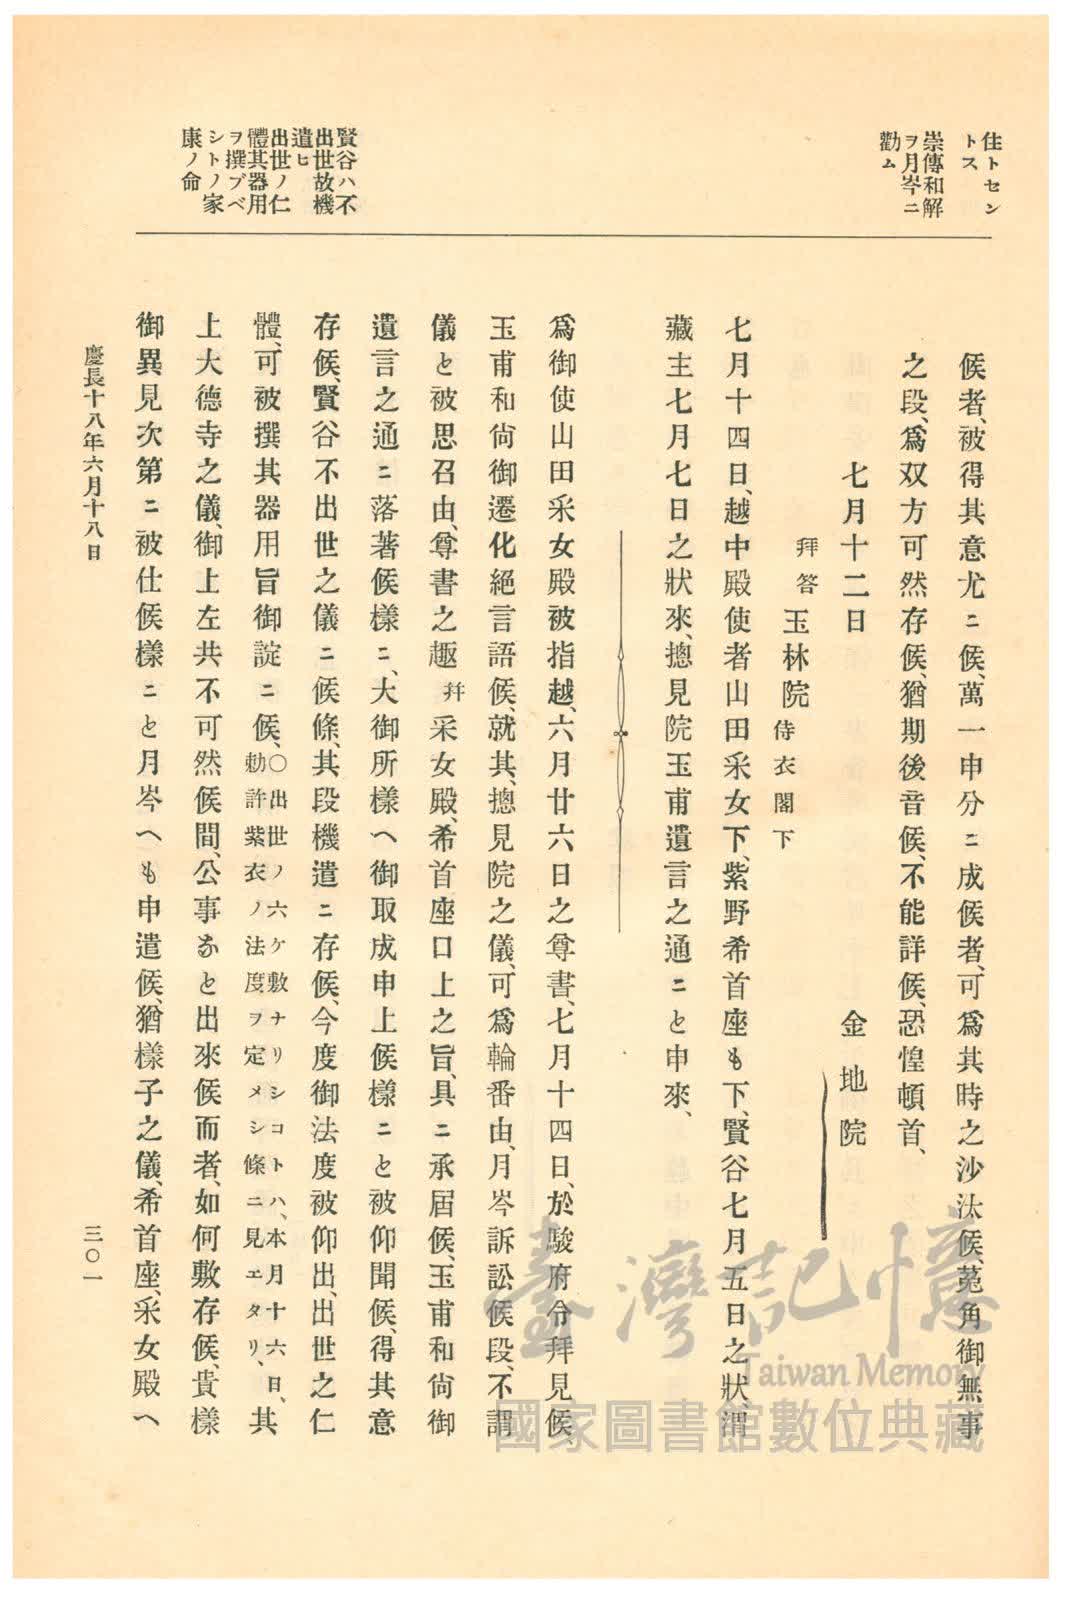 住トセン
トス
崇傳和解
ヲ月岑ニ
勸ム
賢谷ハ不
出世故機
遣ヒ
出世ノ仁
體其器用
ヲ撰ブベ
シトノ家
康ノ命
候者、被得其意尤ニ候、萬一申分ニ成候者、可爲其時之沙汰候、菟角御無事
之段、爲双方可然存候、猶期後音候、不能詳候、恐惶頓首、
七月十二日　金地院
拜答　玉林院侍衣閣下
七月十四日、越中殿使者山田采女下、紫野希首座も下、賢谷七月五日之狀、渭
藏主七月七日之狀來、摠見院玉甫遺言之通ニと申來、
爲御使山田采女殿被指越、六月廿六日之尊書、七月十四日、於駿府令拜見候、
玉甫和尙御遷化絕言語候、就其、摠見院之儀、可爲輪番由、月岑訴訟候段、不謂
儀と被思召由、尊書之趣幷采女殿、希首座口上之旨、具ニ承屆候、玉甫和尙御
遺言之通ニ落著候樣ニ、大御所樣へ御取成申上候樣ニと被仰聞候、得其意
存候、賢谷不出世之儀ニ候條、其段機遣ニ存候、今度御法度被仰出、出世之仁
體、可被撰其器用旨御諚ニ候、〇出世ノ六ケ敷ナリシコトハ、本月十六日、勅許紫衣ノ法度ヲ定メシ條ニ見エタリ、其
上大德寺之儀、御上左共不可然候間、公事なと出來候而者、如何敷存候、貴樣
御異見次第ニ被仕候樣ニと月岑へも申遣候、猶樣子之儀、希首座、采女殿へ
慶長十八年六月十八日
三〇一
臺灣記憶
Taiwan Memory
國家圖書館數位典藏